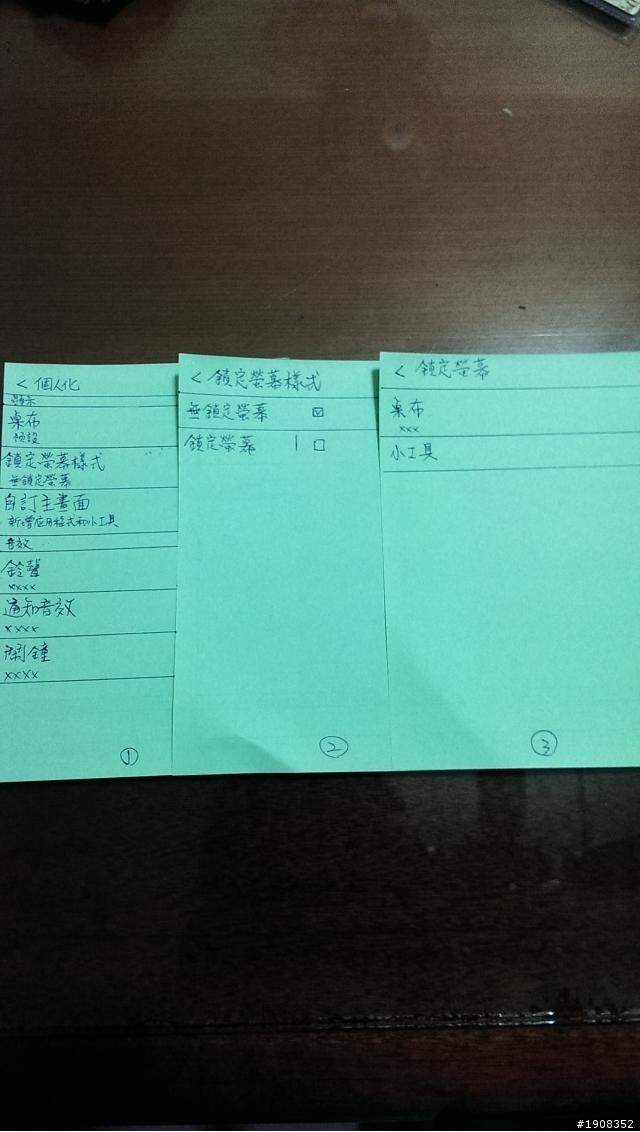 < 個人化
顯示
桌布
預設
鎖定螢幕樣式
無鎖定螢幕
自訂主畫面
新增应用程式和小工具
音效
鈴聲
xxxx
通知音效
xxxx
鬧鐘
xxxx
①
< 鎖定螢幕樣式
無鎖定螢幕 ☑
鎖定螢幕 | ☐
②
< 鎖定螢幕
桌布
xxx
小工具
③
#1908352